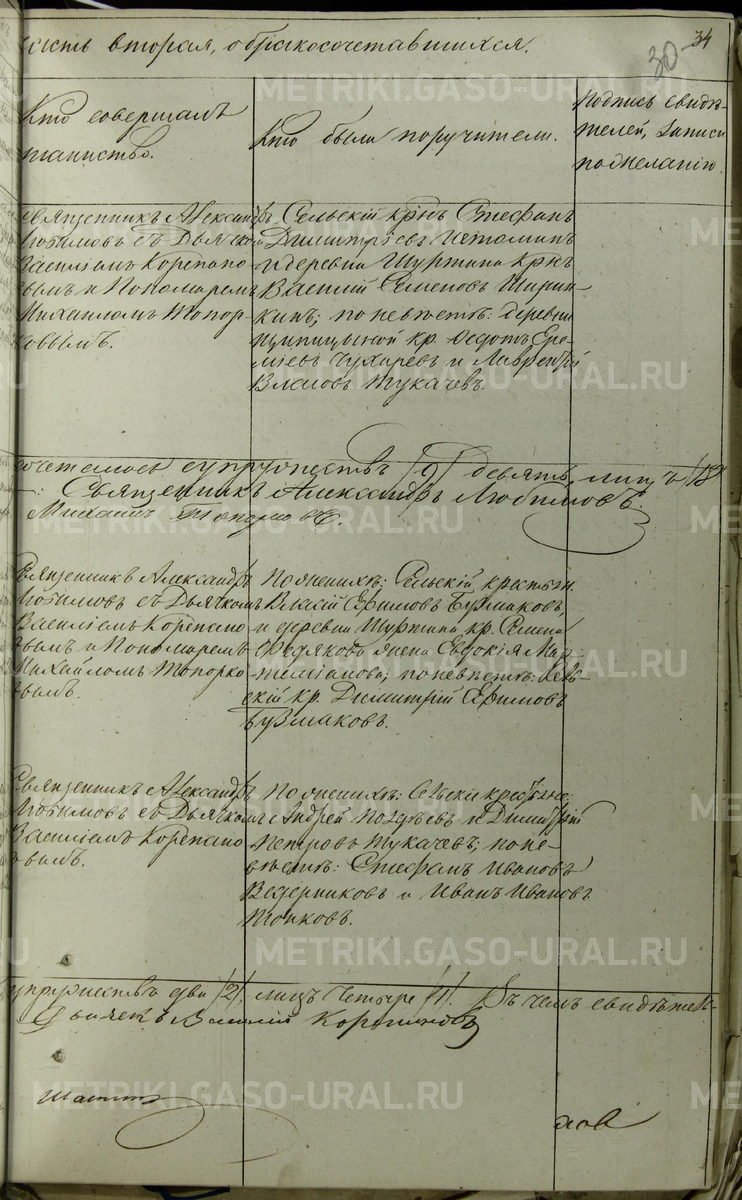 часть вторая, о бракосочетавшихся.
30
34
Кто совершалъ
таинство.
Кто были поручители.
Подпись свидѣ-
телей, записи
по желанію.
Священникъ Александръ
Любимовъ съ Дьячкомъ
Василіемъ Корепано-
вымъ и Пономаремъ
Михаиломъ Топор-
ковымъ.
Сельскій крнъ Стефанъ
Димитріевъ Истоминъ
и деревни Шуртина крнъ
Василій Семеновъ Ширин-
кинъ; по невѣстѣ: деревни
кр. Федотъ Ере-
мѣевъ Чухаревъ и Лаврентій
Власовъ Тукачевъ.
супружествъ /9/ девять, лицъ /18/
Священникъ Александръ Любимовъ.
Михаилъ Топорковъ.
Священникъ Александръ
Любимовъ съ Дьячкомъ
Василіемъ Корепано
вымъ и Пономаремъ
Михайломъ Топорко
вымъ.
По женихѣ: Сельскій крестьян.
Власій Ефимовъ Бузмаковъ,
и деревни Шуртина кр. Семена
Федякова жена Евдокія Мар-
теміанова; по невѣстѣ: Сель-
скій кр. Димитрій Ефимовъ
Бузмаковъ.
Священникъ Александръ
Любимовъ съ Дьячкомъ
Василіемъ Корепано
вымъ.
По женихѣ: Сельскіе крестьяне
Андрей и Димитрій
Петровъ Тукачевъ; по не-
вѣстѣ: Стефанъ Ивановъ
Ведерниковъ и Иванъ Ивановъ
супружествъ два /2/, лицъ четыре /4/. Въ чемъ свидѣтель-
Дьячекъ Василій Корепановъ
METRIKI.GASO-URAL.RU